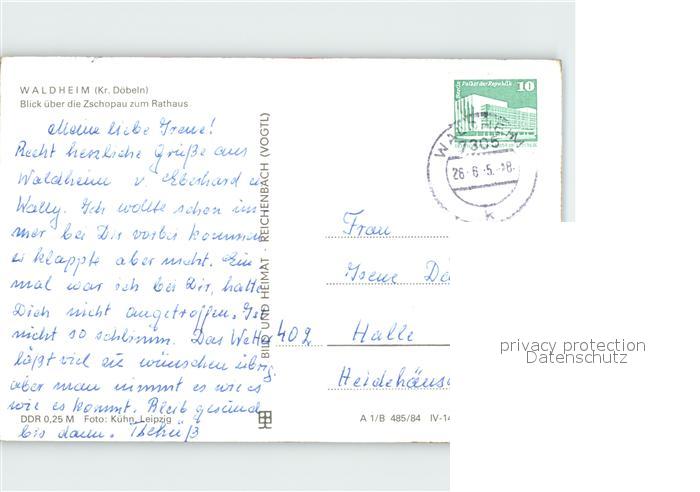 WALDHEIM (Kr. Döbeln)
Blick über die Zschopau zum Rathaus
Meine liebe Irene!
Recht herzliche Grüße aus
Waldheim v. Eberhard u.
Wally. Ich wollte schon im-
mer bei Dir vorbei kommen
es klappte aber nicht. Ein
mal war ich bei Dir, hatte
Dich nicht angetroffen.
nicht so schlimm. Das Wetter
läßt viel zu wünschen übrig,
aber man nimmt es wie es
wie es kommt. Bleib gesund
bis dann. Tschüß
DDR 0,25 M Foto: Kühn, Leipzig
BILD UND HEIMAT · REICHENBACH (VOGTL)
Palast der Republik
10
WALDHEIM
7305
26.-6.-5.-18
k
Frau
Irene
402 Halle
Heidehäus
A 1/B 485/84 IV-14
privacy protection
Datenschutz